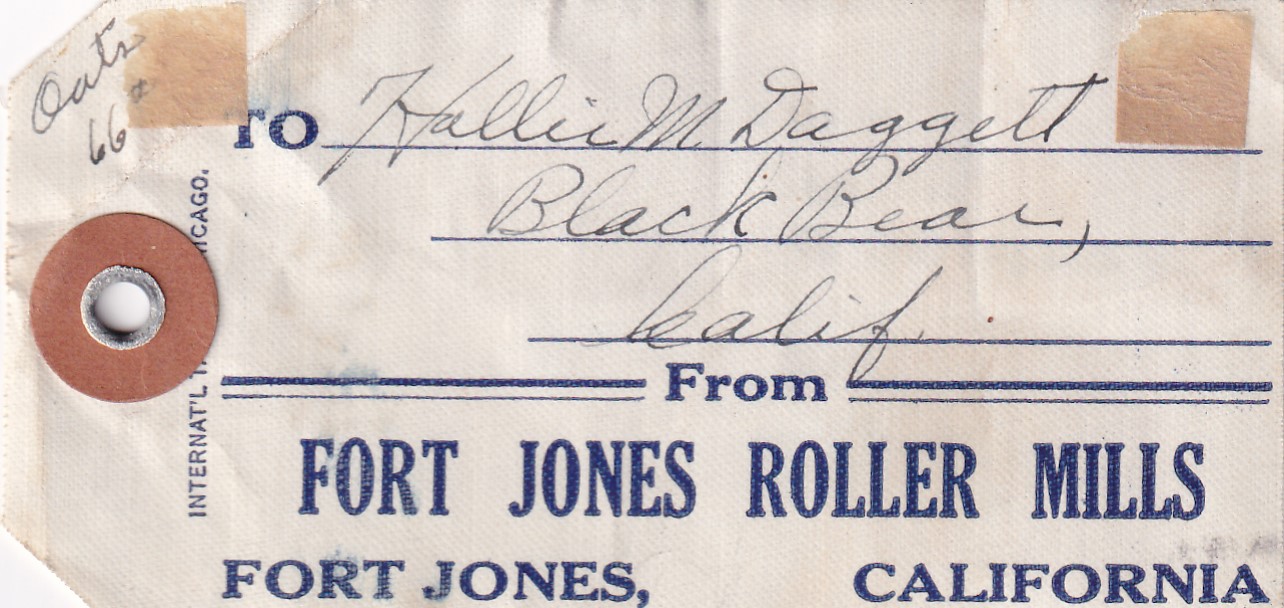 Oats
66#
TO Hallie M. Daggett
Black Bear,
Calif.
From
FORT JONES ROLLER MILLS
FORT JONES, CALIFORNIA
INTERNAT'L